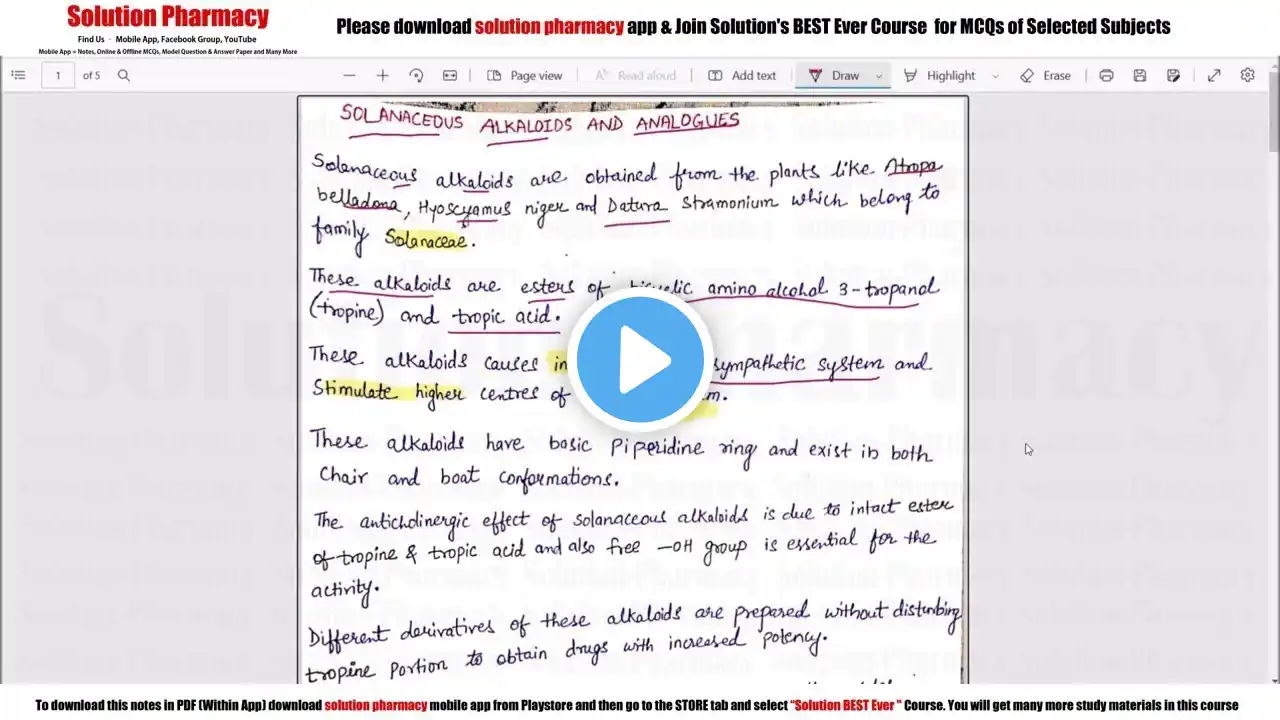 Solution Pharmacy
Find Us - Mobile App, Facebook Group, YouTube
Mobile App = Notes, Online & Offline MCQs, Model Question & Answer Paper and Many More
Please download solution pharmacy app & Join Solution's BEST Ever Course for MCQs of Selected Subjects
1 of 5 Page view Read aloud Add text Draw Highlight Erase
SOLANACEOUS ALKALOIDS AND ANALOGUES
Solanaceous alkaloids are obtained from the plants like Atropa
belladona, Hyoscyamus niger and Datura Stramonium which belong to
family Solanaceae.
These alkaloids are esters of amino alcohol 3-tropanol
(tropine) and tropic acid.
These alkaloids causes sympathetic system and
Stimulate higher centres of
These alkaloids have basic Piperidine ring and exist in both
Chair and boat conformations.
The anticholinergic effect of solanaceous alkaloids is due to intact ester
of tropine & tropic acid and also free -OH group is essential for the
activity.
Different derivatives of these alkaloids are prepared without disturbing
tropine portion to obtain drugs with increased potency.
Solution Pharmacy
To download this notes in PDF (Within App) download solution pharmacy mobile app from Playstore and then go to the STORE tab and select "Solution BEST Ever " Course. You will get many more study materials in this course